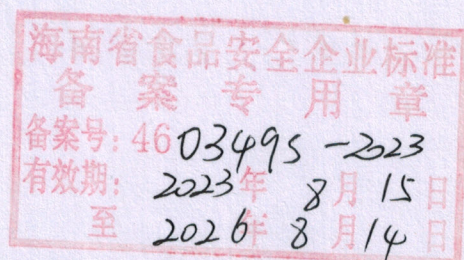 海南省食品安全企业标准
备案专用章
备案号：46 03495-2023
有效期：2023年 8月 15日
至 2026年 8月 14日